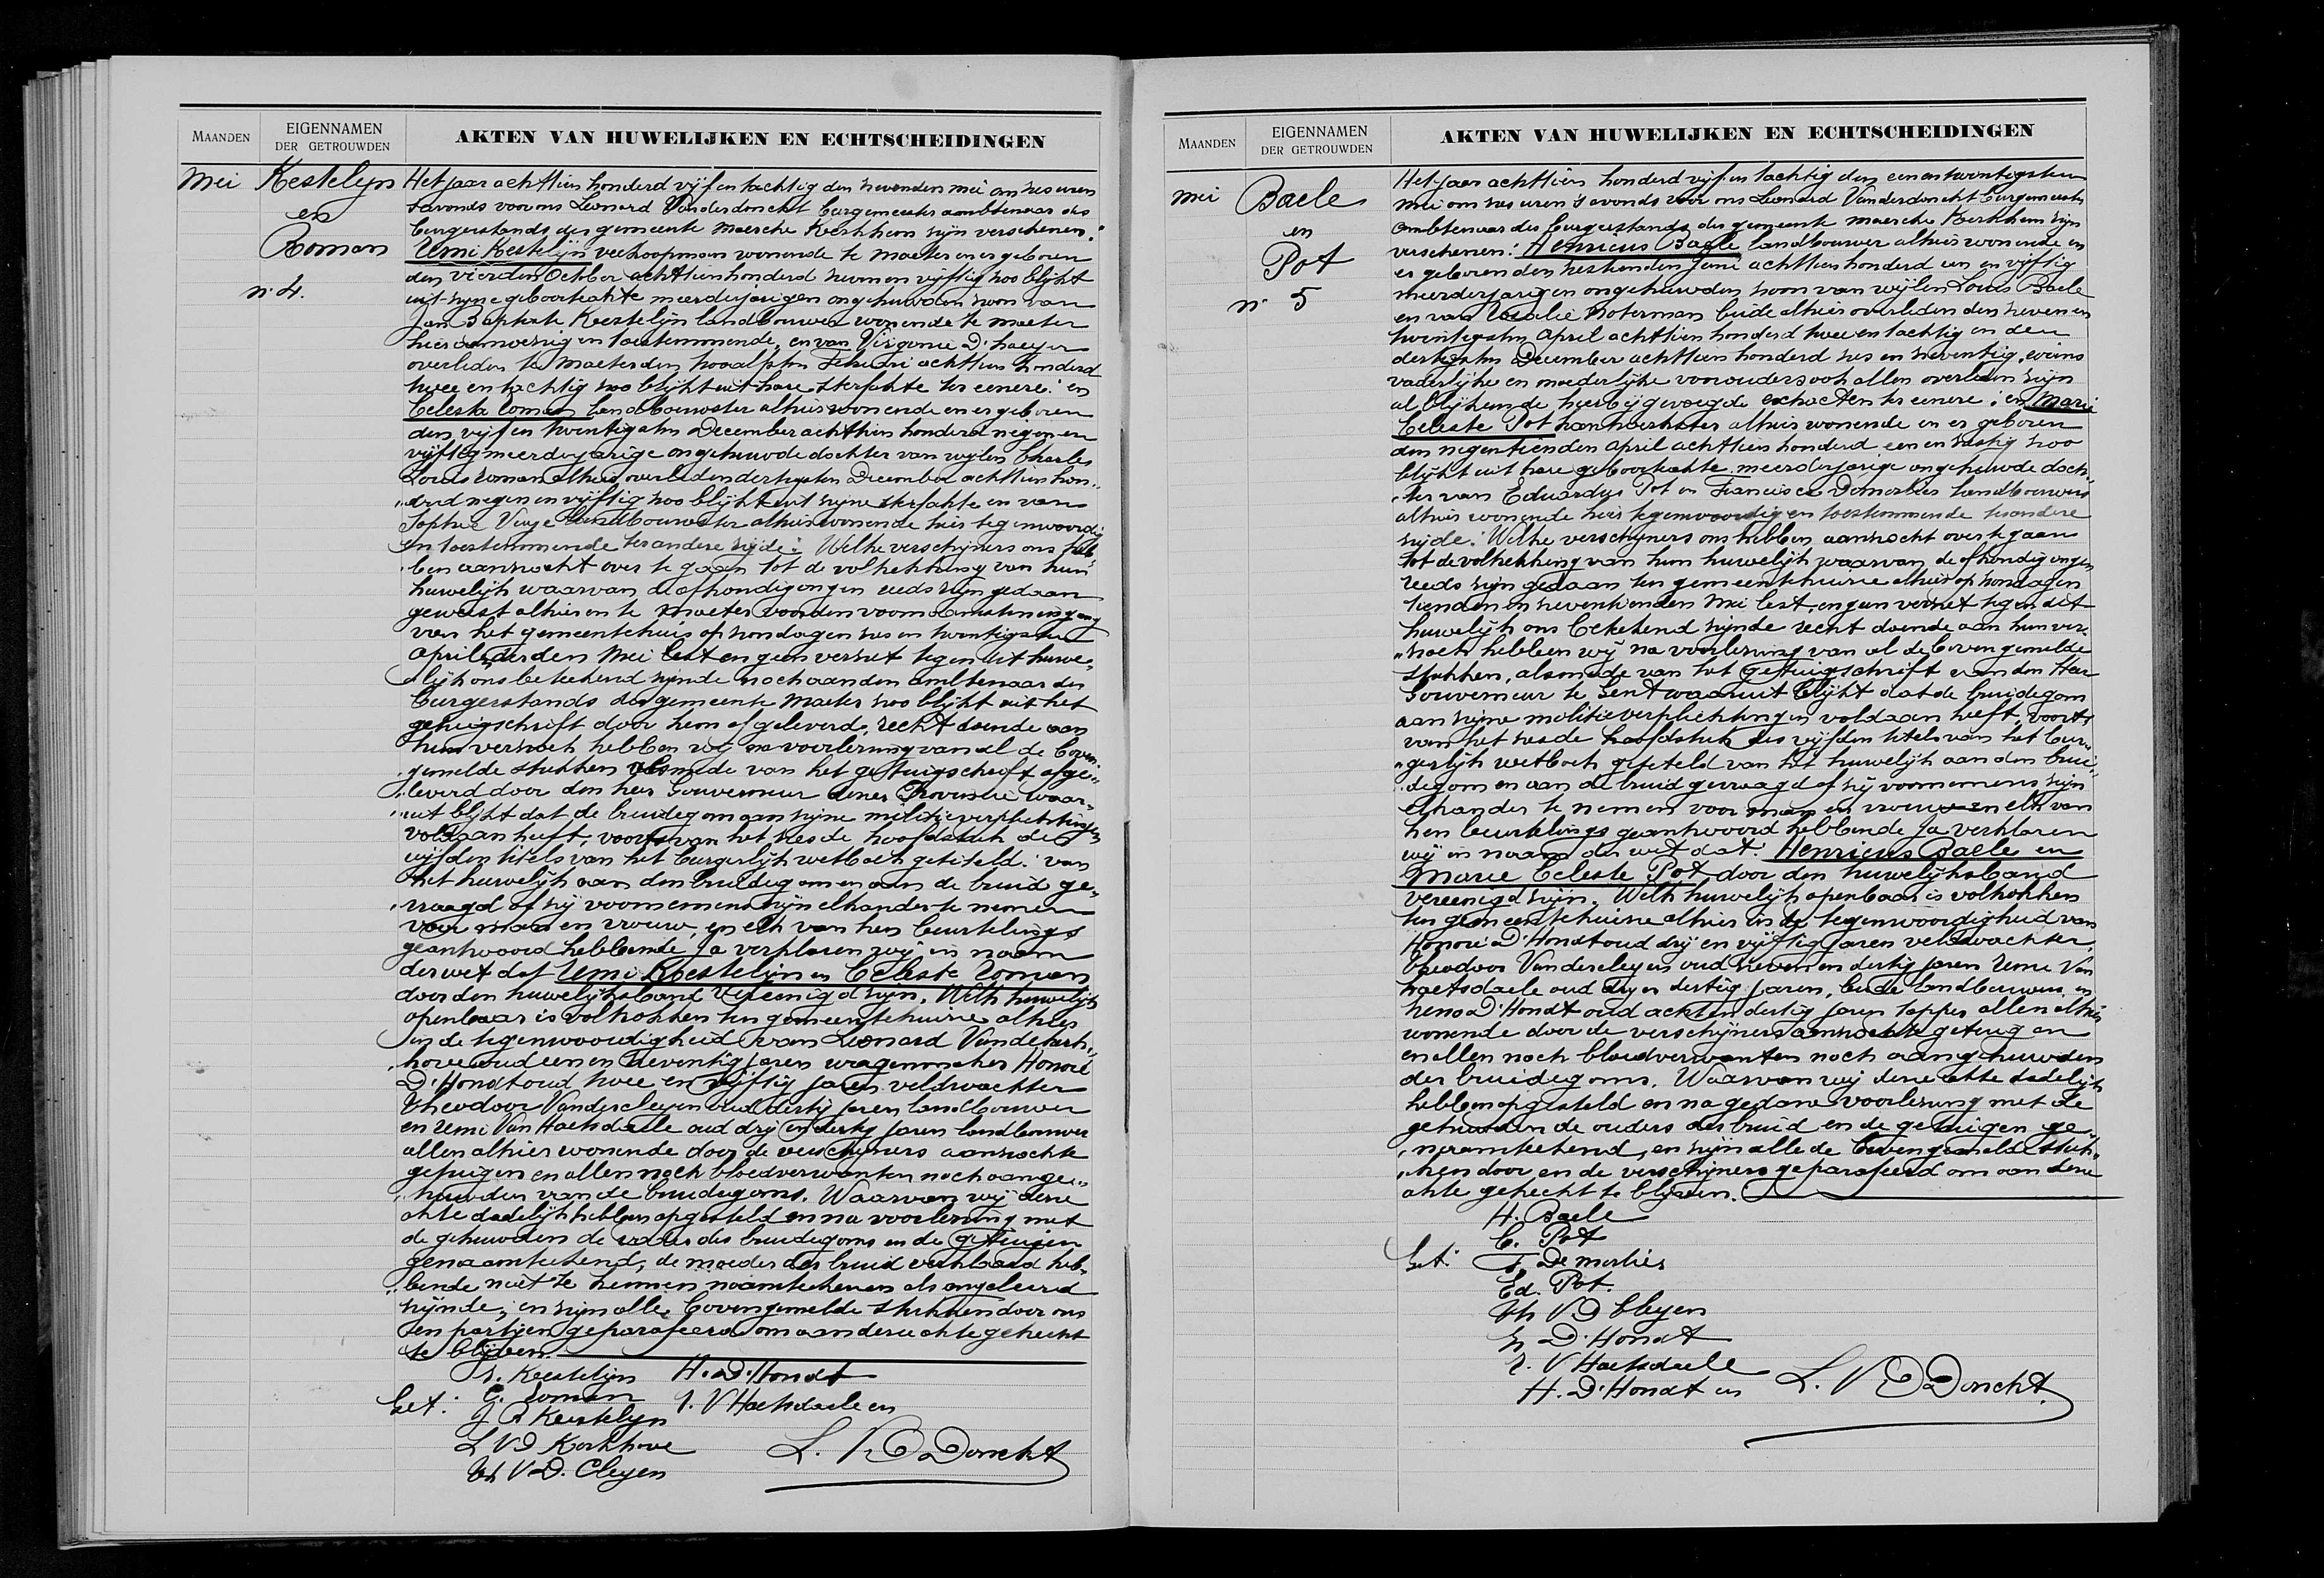 MAANDEN
EIGENNAMEN
DER GETROUWDEN
AKTEN VAN HUWELIJKEN EN ECHTSCHEIDINGEN
Mei
Kestelyn
en
Roman
n. 4.
Het jaar achttien honderd vijf en tachtig den sevenden mei om ses uren
s'avonds voor ons Leonard Vanderdonckt burgemeester ambtenaar des
burgerstands der gemeente Maercke Kerkhem zijn verschenen:
Remi Kestelijn veekoopman wonende te Maeter en er geboren
den vierden October achttienhonderd seven en vijftig zoo blijkt
uit zijne geboorteakte meerderjarigen ongehuwden zoon van
Jan Baptiste Kestelijn landbouwer wonende te Maeter
hier aanwezig en toestemmende, en van Virginie D'haeyer
overleden te Maeter den twaalfsten Februari achttien honderd
twee en tachtig zoo blijkt uit hare sterfakte ter eenere: en
Celeste Roman landbouwster alhier wonende en er geboren
den vijf en twintigsten December achttien honderd negen en
vijftig meerderjarige ongehuwde dochter van wijlen Charles
Louis Roman alhier overleden dertigsten December achttien hon-
"derd negen en vijftig zoo blijkt uit zijne sterfakte en van
Sophie landbouwster alhier wonende hier tegenwoordig
en toestemmende ter andere zijde: Welke verschijners ons heb"
"ben aanzocht over te gaan tot de voltrekking van hun
huwelijk waarvan de afkondigingen reeds zijn gedaan
geweest alhier en te Maeter voor den voornaamsten ingang
van het gemeentehuis op zondagen ses en twintigsten
april, derden Mei lest en geen verzet tegen dit huwe-
"lijk ons beteekend zijnde noch aan den ambtenaar des
burgerstands der gemeente Maeter zoo blijkt uit het
getuigschrift door hem afgeleverd, recht doende aan
hun verzoek hebben wij na voorlezing van al de boven"
"gemelde stukken alsmede van het getuigschrift afge"
"leverd door den heer Gouverneur dezer Provincie waar"
"uit blijkt dat de bruidegom aan zijne militieverplichtingen
voldaan heeft, voorts van het sesde hoofdstuk des
vijfden titels van het burgerlijk wetboek getiteld: van
het huwelijk aan den bruidegom en aan de bruid ge-
"vraagd of zij voornemens zijn elkander te nemen
voor man en vrouw, en elk van hen beurtelings
geantwoord hebbende Ja verklaren wij in naam
der wet dat Remi Kestelijn en Celeste Roman
door den huwelijksband vereenigd zijn. Welk huwelijk
openbaar is voltrokken ten gemeentehuize alhier
in de tegenwoordigheid van Leonard Vandekerk"
"hove oud een en seventig jaren wagenmaker Honoré
D'Hondt oud twee en vijftig jaren veldwachter
Theodoor Vandercleyen oud dertig jaren landbouwer
en Remi Van Haetsdaele oud drij en dertig jaren landbouwer
allen alhier wonende door de verschijners aanzochte
getuigen en allen noch bloedverwanten noch aange"
"huwden van de bruidegoms. Waarvan wij deze
akte dadelijk hebben opgesteld en na voorlezing met
de gehuwden de vader des bruidegoms en de getuigen
genaamteekend, de moeder der bruid verklaard heb"
"bende niet te kennen naamteekenen als ongeleerd
zijnde, en zijn alle bovengemelde stukken door ons
en partijen geparafeerd om aan deze akte gehecht
te blijven.
R. Kestelijn H. D'Hondt
Get: C. Roman R. V Haetsdaele en
J B Kestelyn
L VD Kerkhove
Th V.D. Cleyen
L. VD Donckt
MAANDEN
EIGENNAMEN
DER GETROUWDEN
AKTEN VAN HUWELIJKEN EN ECHTSCHEIDINGEN
Mei
Baele
en
Pot
n. 5
Het jaar achttien honderd vijf en tachtig den een en twintigsten
Mei om ses uren s'avonds voor ons Leonard Vanderdonckt burgemeester
ambtenaar des burgerstands der gemeente Maercke Kerkhem zijn
verschenen: Henricus Baele landbouwer alhier wonende en
er geboren den sestienden Juni achttien honderd een en vijftig
meerderjarigen ongehuwden zoon van wijlen Louis Baele
en van Rosalie Noterman beide alhier overleden den seven en
twintigsten April achttien honderd twee en tachtig en den
dertigsten December achttien honderd ses en seventig, wiens
vaderlijke en moederlijke voorouders ook allen overleden zijn
al blijkende hierbij gevoegde extracten ter eenere: en Marie
Celeste Pot kantwerkster alhier wonende en er geboren
den negentienden April achttien honderd een en sestig zoo
blijkt uit hare geboorteakte meerderjarige ongehuwde doch"
"ter van Eduardus Pot en Francisca Demorlier landbouwers
alhier wonende hier tegenwoordig en toestemmende ter andere
zijde: Welke verschijners ons hebben aanzocht over te gaan
tot de voltrekking van hun huwelijk waarvan de afkondigingen
reeds zijn gedaan ten gemeentehuize alhier op zondagen
tienden en seventienden Mei lest, en geen verzet tegen dit
huwelijk ons beteekend zijnde recht doende aan hun ver-
"zoek hebben wij na voorlezing van al de bovengemelde
stukken, alsmede van het getuigschrift van den Heer
Gouverneur te Gent waaruit blijkt dat de bruidegom
aan zijne militieverplichtingen voldaan heeft, voorts
van het sesde hoofdstuk des vijfden titels van het bur"
"gerlijk wetboek getiteld van het huwelijk aan den brui"
"degom en aan de bruid gevraagd of zij voornemens zijn
elkander te nemen voor man en vrouw en elk van
hen beurtelings geantwoord hebbende Ja verklaren
wij in naam der wet dat: Henricus Baele en
Marie Celeste Pot door den huwelijksband
vereenigd zijn. Welk huwelijk openbaar is voltrokken
ten gemeentehuize alhier in de tegenwoordigheid van
Honoré D'Hondt oud drij en vijftig jaren veldwachter,
Theodoor Vandercleyen oud seven en dertig jaren Remi Van
Haetsdaele oud drij en dertig jaren, beide landbouwers en
D'Hondt oud acht en dertig jaren tapper allen alhier
wonende door de verschijners aanzochte getuigen
en allen noch bloedverwanten noch aangehuwden
des bruidegoms. Waarvan wij deze akte dadelijk
hebben opgesteld en na gedane voorlezing met de
gehuwden de ouders der bruid en de getuigen ge-
"naamteekend, en zijn alle de bovengemelde stuk"
"ken door en de verschijners geparafeerd om aan deze
akte gehecht te blijven.
H. Baele
C. Pot
Get: F. Demorlier
Ed. Pot.
Th V.D Cleyen
D'Hondt
R. V Haetsdaele
H. D'Hondt en L. VD Donckt.